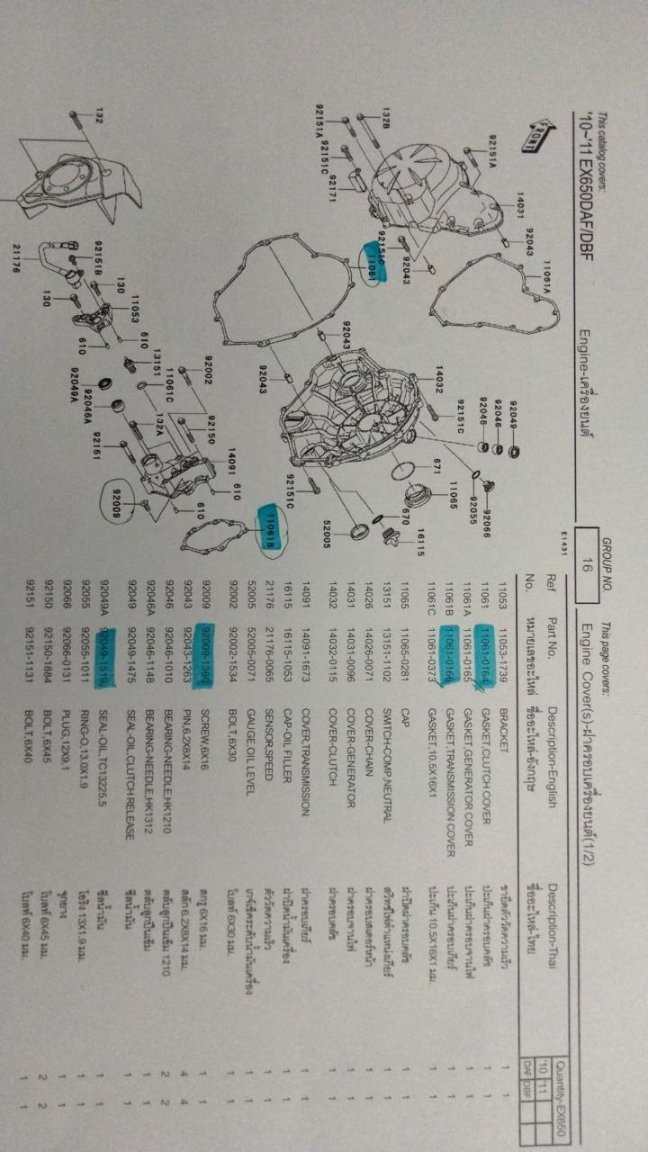 This catalog covers:
'10~'11 EX650DAF/DBF
Engine-เครื่องยนต์
GROUP NO.
16
This page covers:
Engine Cover(s)-ฝาครอบเครื่องยนต์(1/2)
E1491
FRONT
92151A
14031
92043
11061A
132B
92151A
92151C
92171
92151C
92043
11061
92043
92043
14032
92151C
92046
92046
92049
92066
92055
11065
671
670
16115
52005
92151C
132
21176
92151B
130
130
11053
610
610
13151
11061C
92049A
92046A
92002
92150
132A
92151
14091
610
610
92009
11061B
Ref No.
Part No. หมายเลขอะไหล่
Description-English ชื่ออะไหล่-อังกฤษ
Description-Thai ชื่ออะไหล่-ไทย
Quantity-EX650
'10 '11
DAF DBF
11053 11053-1739 BRACKET ขายึดตัววัดความเร็ว 1 1
11061 11061-0164 GASKET,CLUTCH COVER ปะเก็นฝาครอบคลัช 1 1
11061A 11061-0165 GASKET,GENERATOR COVER ปะเก็นฝาครอบจานไฟ 1 1
11061B 11061-0166 GASKET,TRANSMISSION COVER ปะเก็นฝาครอบเกียร์ 1 1
11061C 11061-0373 GASKET,10.5X16X1 ปะเก็น 10.5X16X1 มม. 1 1
11065 11065-0281 CAP ฝาปิดฝาครอบคลัช 1 1
13151 13151-1102 SWITCH-COMP,NEUTRAL สวิทซ์ไฟตำแหน่งเกียร์ 1 1
14026 14026-0071 COVER-CHAIN ฝาครอบสเตอร์หน้า 1 1
14031 14031-0096 COVER-GENERATOR ฝาครอบจานไฟ 1 1
14032 14032-0115 COVER-CLUTCH ฝาครอบคลัช 1 1
14091 14091-1673 COVER,TRANSMISSION ฝาครอบเกียร์ 1 1
16115 16115-1053 CAP-OIL FILLER ฝาปิดน้ำมันเครื่อง 1 1
21176 21176-0065 SENSOR,SPEED ตัววัดความเร็ว 1 1
52005 52005-0071 GAUGE,OIL LEVEL เกจ์เช็คระดับน้ำมันเครื่อง 1 1
92002 92002-1534 BOLT,6X30 โบลท์ 6X30 มม. 1 1
92009 92009-1380 SCREW,6X16 สกรู 6X16 มม. 1 1
92043 92043-1263 PIN,6.2X8X14 สลัก 6.2X8X14 มม. 4 4
92046 92046-1010 BEARING-NEEDLE,HK1210 ตลับลูกปืนเข็ม 1210 2 2
92046A 92046-1148 BEARING-NEEDLE,HK1312 ตลับลูกปืนเข็ม 1 1
92049 92049-1475 SEAL-OIL,CLUTCH RELEASE ซีลน้ำมัน 1 1
92049A 92049-1519 SEAL-OIL,TC13225.5 ซีลน้ำมัน 1 1
92055 92055-1011 RING-O,13.0X1.9 โอริง 13X1.9 มม. 1 1
92066 92066-0131 PLUG,12X9.1 จุกยาง 1 1
92150 92150-1884 BOLT,6X45 โบลท์ 6X45 มม. 2 2
92151 92151-1131 BOLT,6X40 โบลท์ 6X40 มม. 1 1